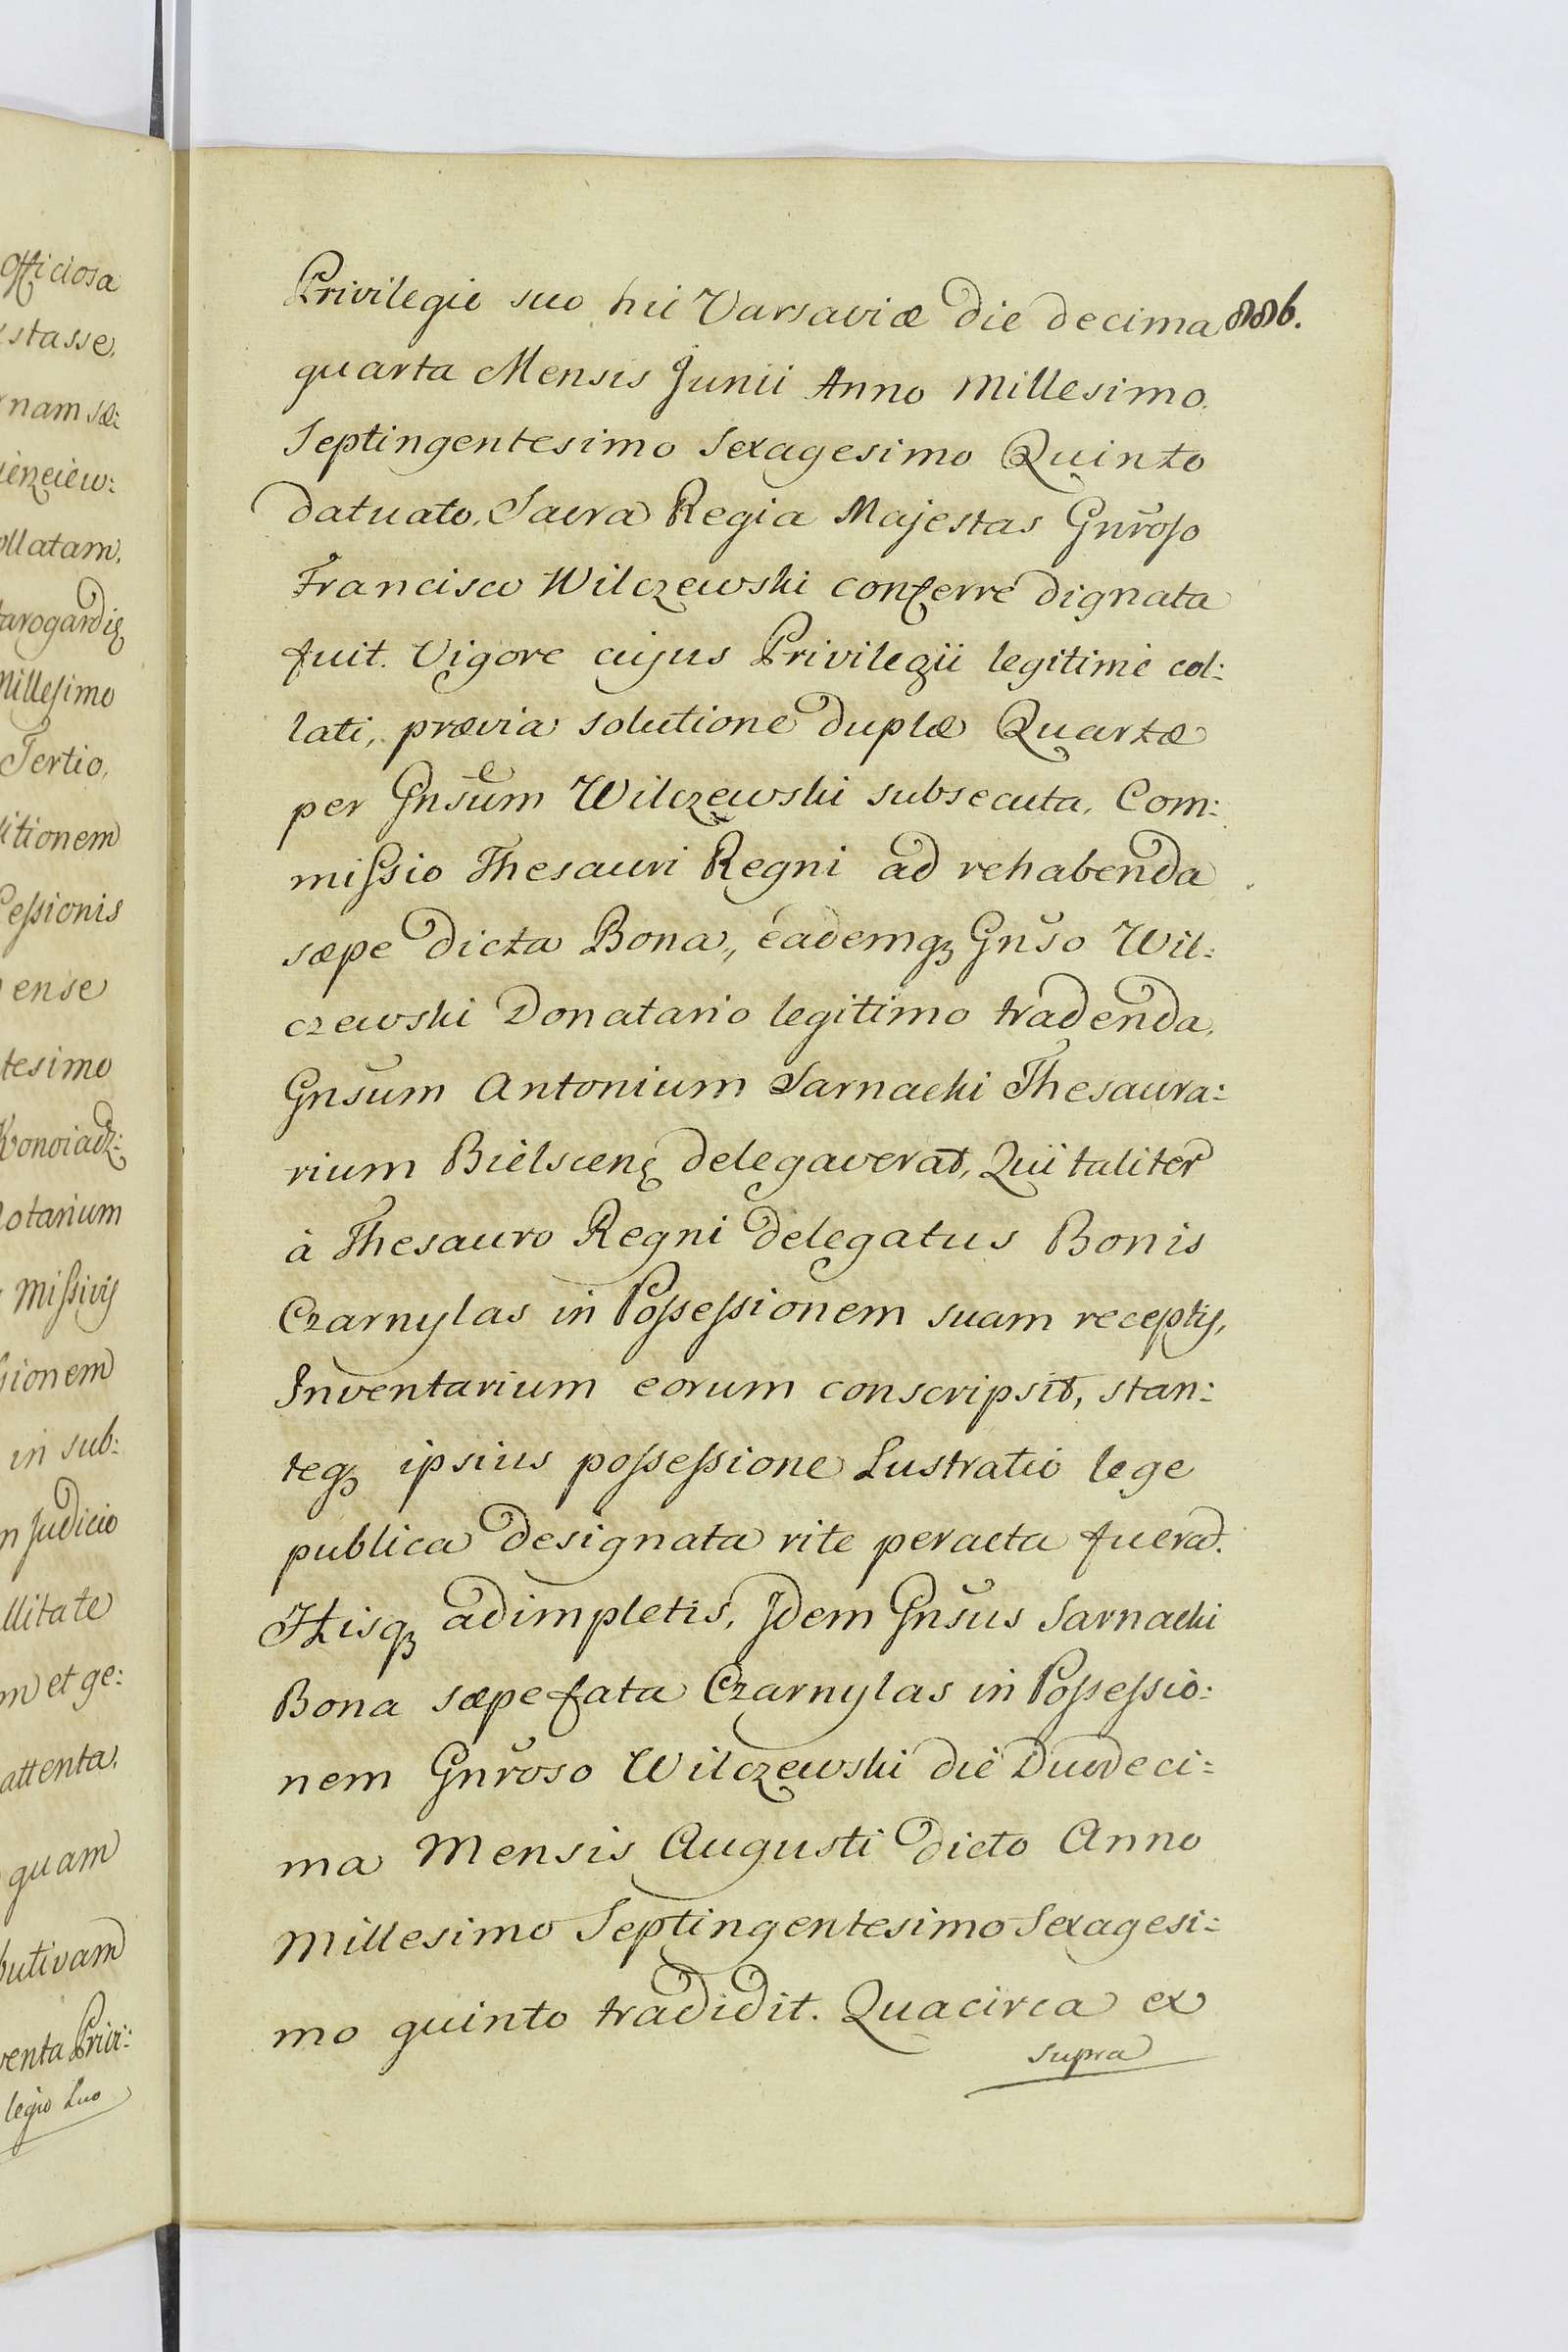 Officiosa
stasse.
nam sæ:
ollatam.
arogardię
Millesimo
Tertio,
itionem
Cessionis
ense
tesimo
Konoiadz:
Notarium
Missivis
sionem
in sub:
n Judicio
llitate
m et ge:
attenta.
quam
butivam
venta Privi:
legio Suo
886.
Privilegio suo hic Varsaviæ die decima
quarta Mensis Junii Anno Millesimo
Septingentesimo Sexagesimo Quinto
datuato, Sacra Regia Majestas Gnroso
Francisco Wilczewski conferre dignata
fuit. Vigore cujus Privilegii legitime col:
lati, prævia solutione duplæ Quartæ
per Gnsum Wilczewski subsecuta, Com:
missio Thesauri Regni ad rehabenda
sæpe dicta Bona, eademq3 Gnso Wil:
czewski Donatario legitimo tradenda,
Gnsum Antonium Sarnacki Thesaura:
rium Bielscenę delegaverat, Qui taliter
à Thesauro Regni delegatus Bonis
Czarnylas in Possessionem suam receptis,
Inventarium eorum conscripsit, stan:
teq3 ipsius possessione Lustratio lege
publica designata rite peracta fuerat.
Hisq3 adimpletis, Idem Gnsus Sarnacki
Bona sæpefata Czarnylas in Possessio:
nem Gnroso Wilczewski die Duodeci:
ma Mensis Augusti dicto Anno
Millesimo Septingentesimo Sexagesi:
mo quinto tradidit. Quacirca ex
supra